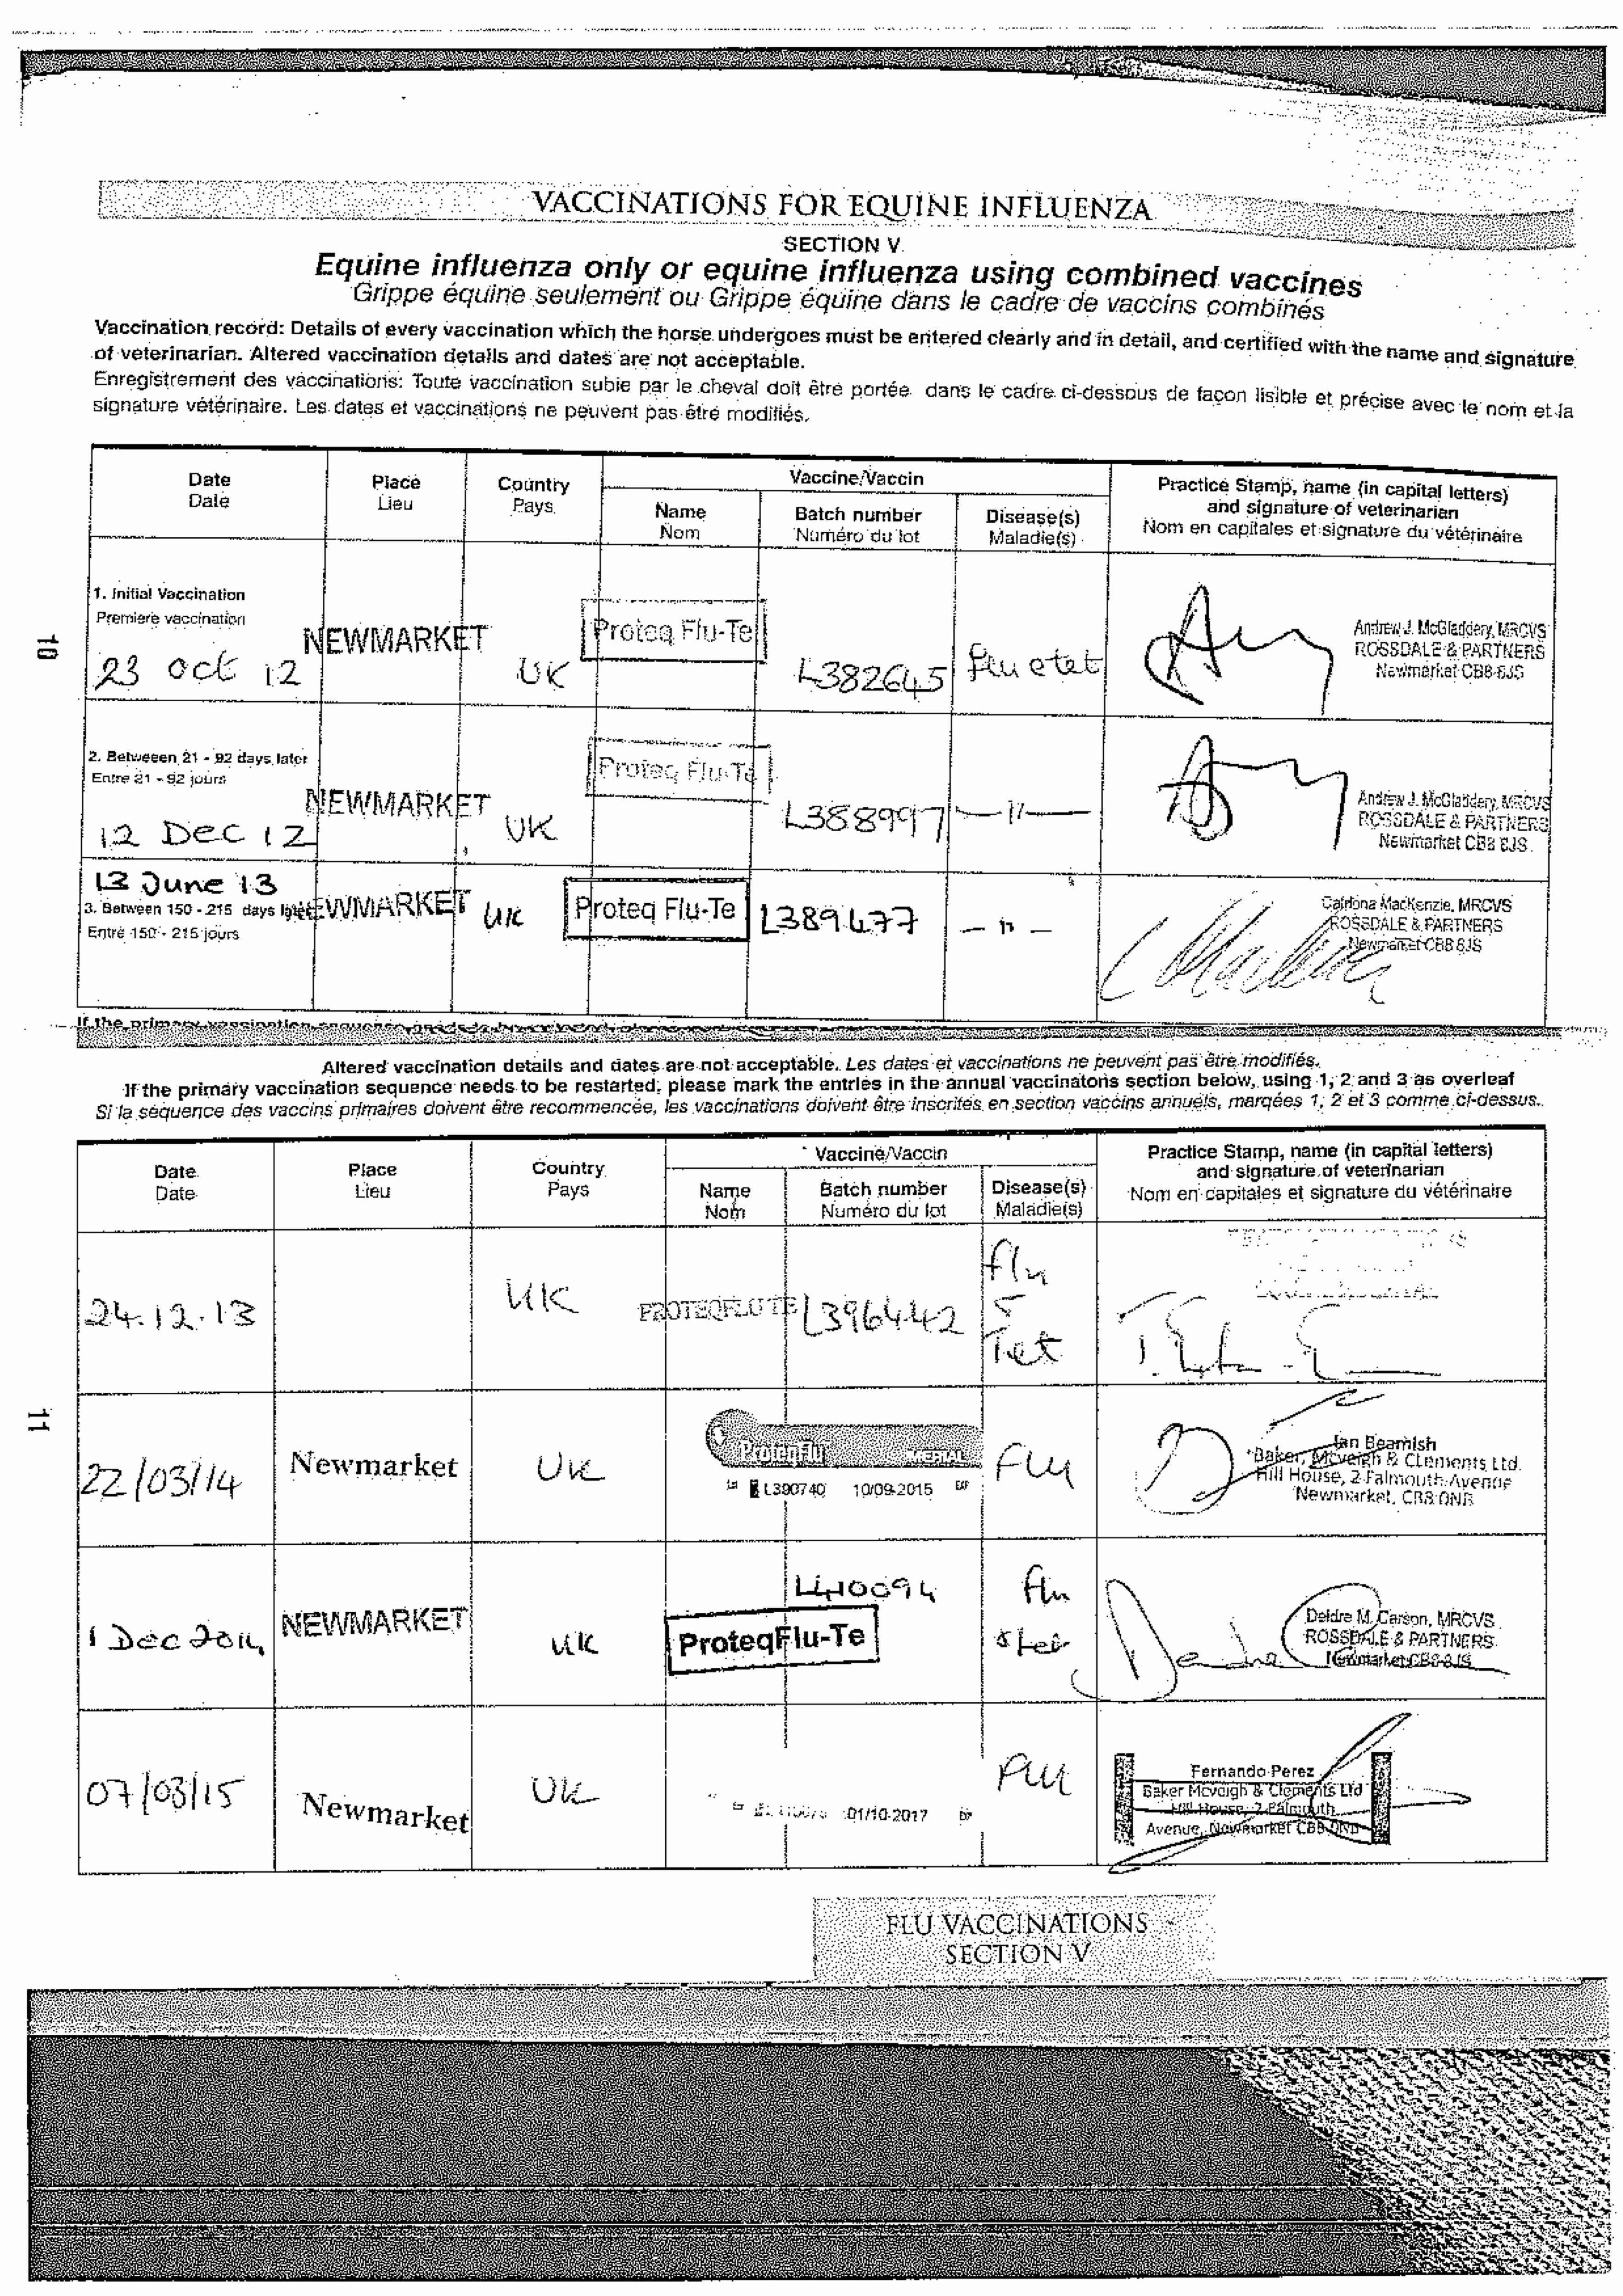 VACCINATIONS FOR EQUINE INFLUENZA
SECTION V
Equine influenza only or equine influenza using combined vaccines
Grippe équine seulement ou Grippe équine dans le cadre de vaccins combinés
Vaccination record: Details of every vaccination which the horse undergoes must be entered clearly and in detail, and certified with the name and signature
of veterinarian. Altered vaccination details and dates are not acceptable.
Enregistrement des vaccinations: Toute vaccination subie par le cheval doit être portée dans le cadre ci-dessous de façon lisible et précise avec le nom et la
signature vétérinaire. Les dates et vaccinations ne peuvent pas être modifiés.
Date Place Country Vaccine/Vaccin Practice Stamp, name (in capital letters)
Date Lieu Pays and signature of veterinarian
Name Batch number Disease(s) Nom en capitales et signature du vétérinaire
Nom Numéro du lot Maladie(s)
1. Initial Vaccination
Premiere vaccination
23 Oct 12 NEWMARKET UK Proteq Flu-Te L382645 flu etet
Andrew J. McGladdery, MRCVS
ROSSDALE & PARTNERS
Newmarket CB8 8JS
10
2. Betweeen 21 - 92 days later
Entre 21 - 92 jours
12 Dec 12 NEWMARKET UK Proteq Flu-Te L388997 —11—
Andrew J. McGladdery, MRCVS
ROSSDALE & PARTNERS
Newmarket CB8 8JS
13 June 13 NEWMARKET UK Proteq Flu-Te L389477 — 11 —
3. Between 150 - 215 days later
Entre 150 - 215 jours
Catriona MacKenzie, MRCVS
ROSSDALE & PARTNERS
Newmarket CB8 8JS
If the primary vaccination sequence needs to be
Altered vaccination details and dates are not acceptable. Les dates et vaccinations ne peuvent pas être modifiés.
If the primary vaccination sequence needs to be restarted, please mark the entries in the annual vaccinatons section below, using 1, 2 and 3 as overleaf
Si la séquence des vaccins primaires doivent être recommencée, les vaccinations doivent être inscrites en section vaccins annuels, marqées 1, 2 et 3 comme ci-dessus.
Date Place Country Vaccine/Vaccin Practice Stamp, name (in capital letters)
Date Lieu Pays and signature of veterinarian
Name Batch number Disease(s) Nom en capitales et signature du vétérinaire
Nom Numéro du lot Maladie(s)
24.12.13 UK PROTEQFLU TE L396442 flu & Tet
11
22/03/14 Newmarket UK ProteqFlu MERIAL Flu
Lot L390740 10/09-2015 EXP
Ian Beamish
Baker, Mcveigh & Clements Ltd.
Hill House, 2 Falmouth Avenue
Newmarket, CB8 0NB
1 Dec 2014 NEWMARKET UK ProteqFlu-Te L410094 flu & tet
Deidre M. Carson, MRCVS
ROSSDALE & PARTNERS
Newmarket CB8 8JS
07/03/15 Newmarket UK 01/10-2017 Flu
Fernando Perez
Baker Mcveigh & Clements Ltd
Hill House, 2 Falmouth
Avenue, Newmarket CB8 0NB
FLU VACCINATIONS
SECTION V